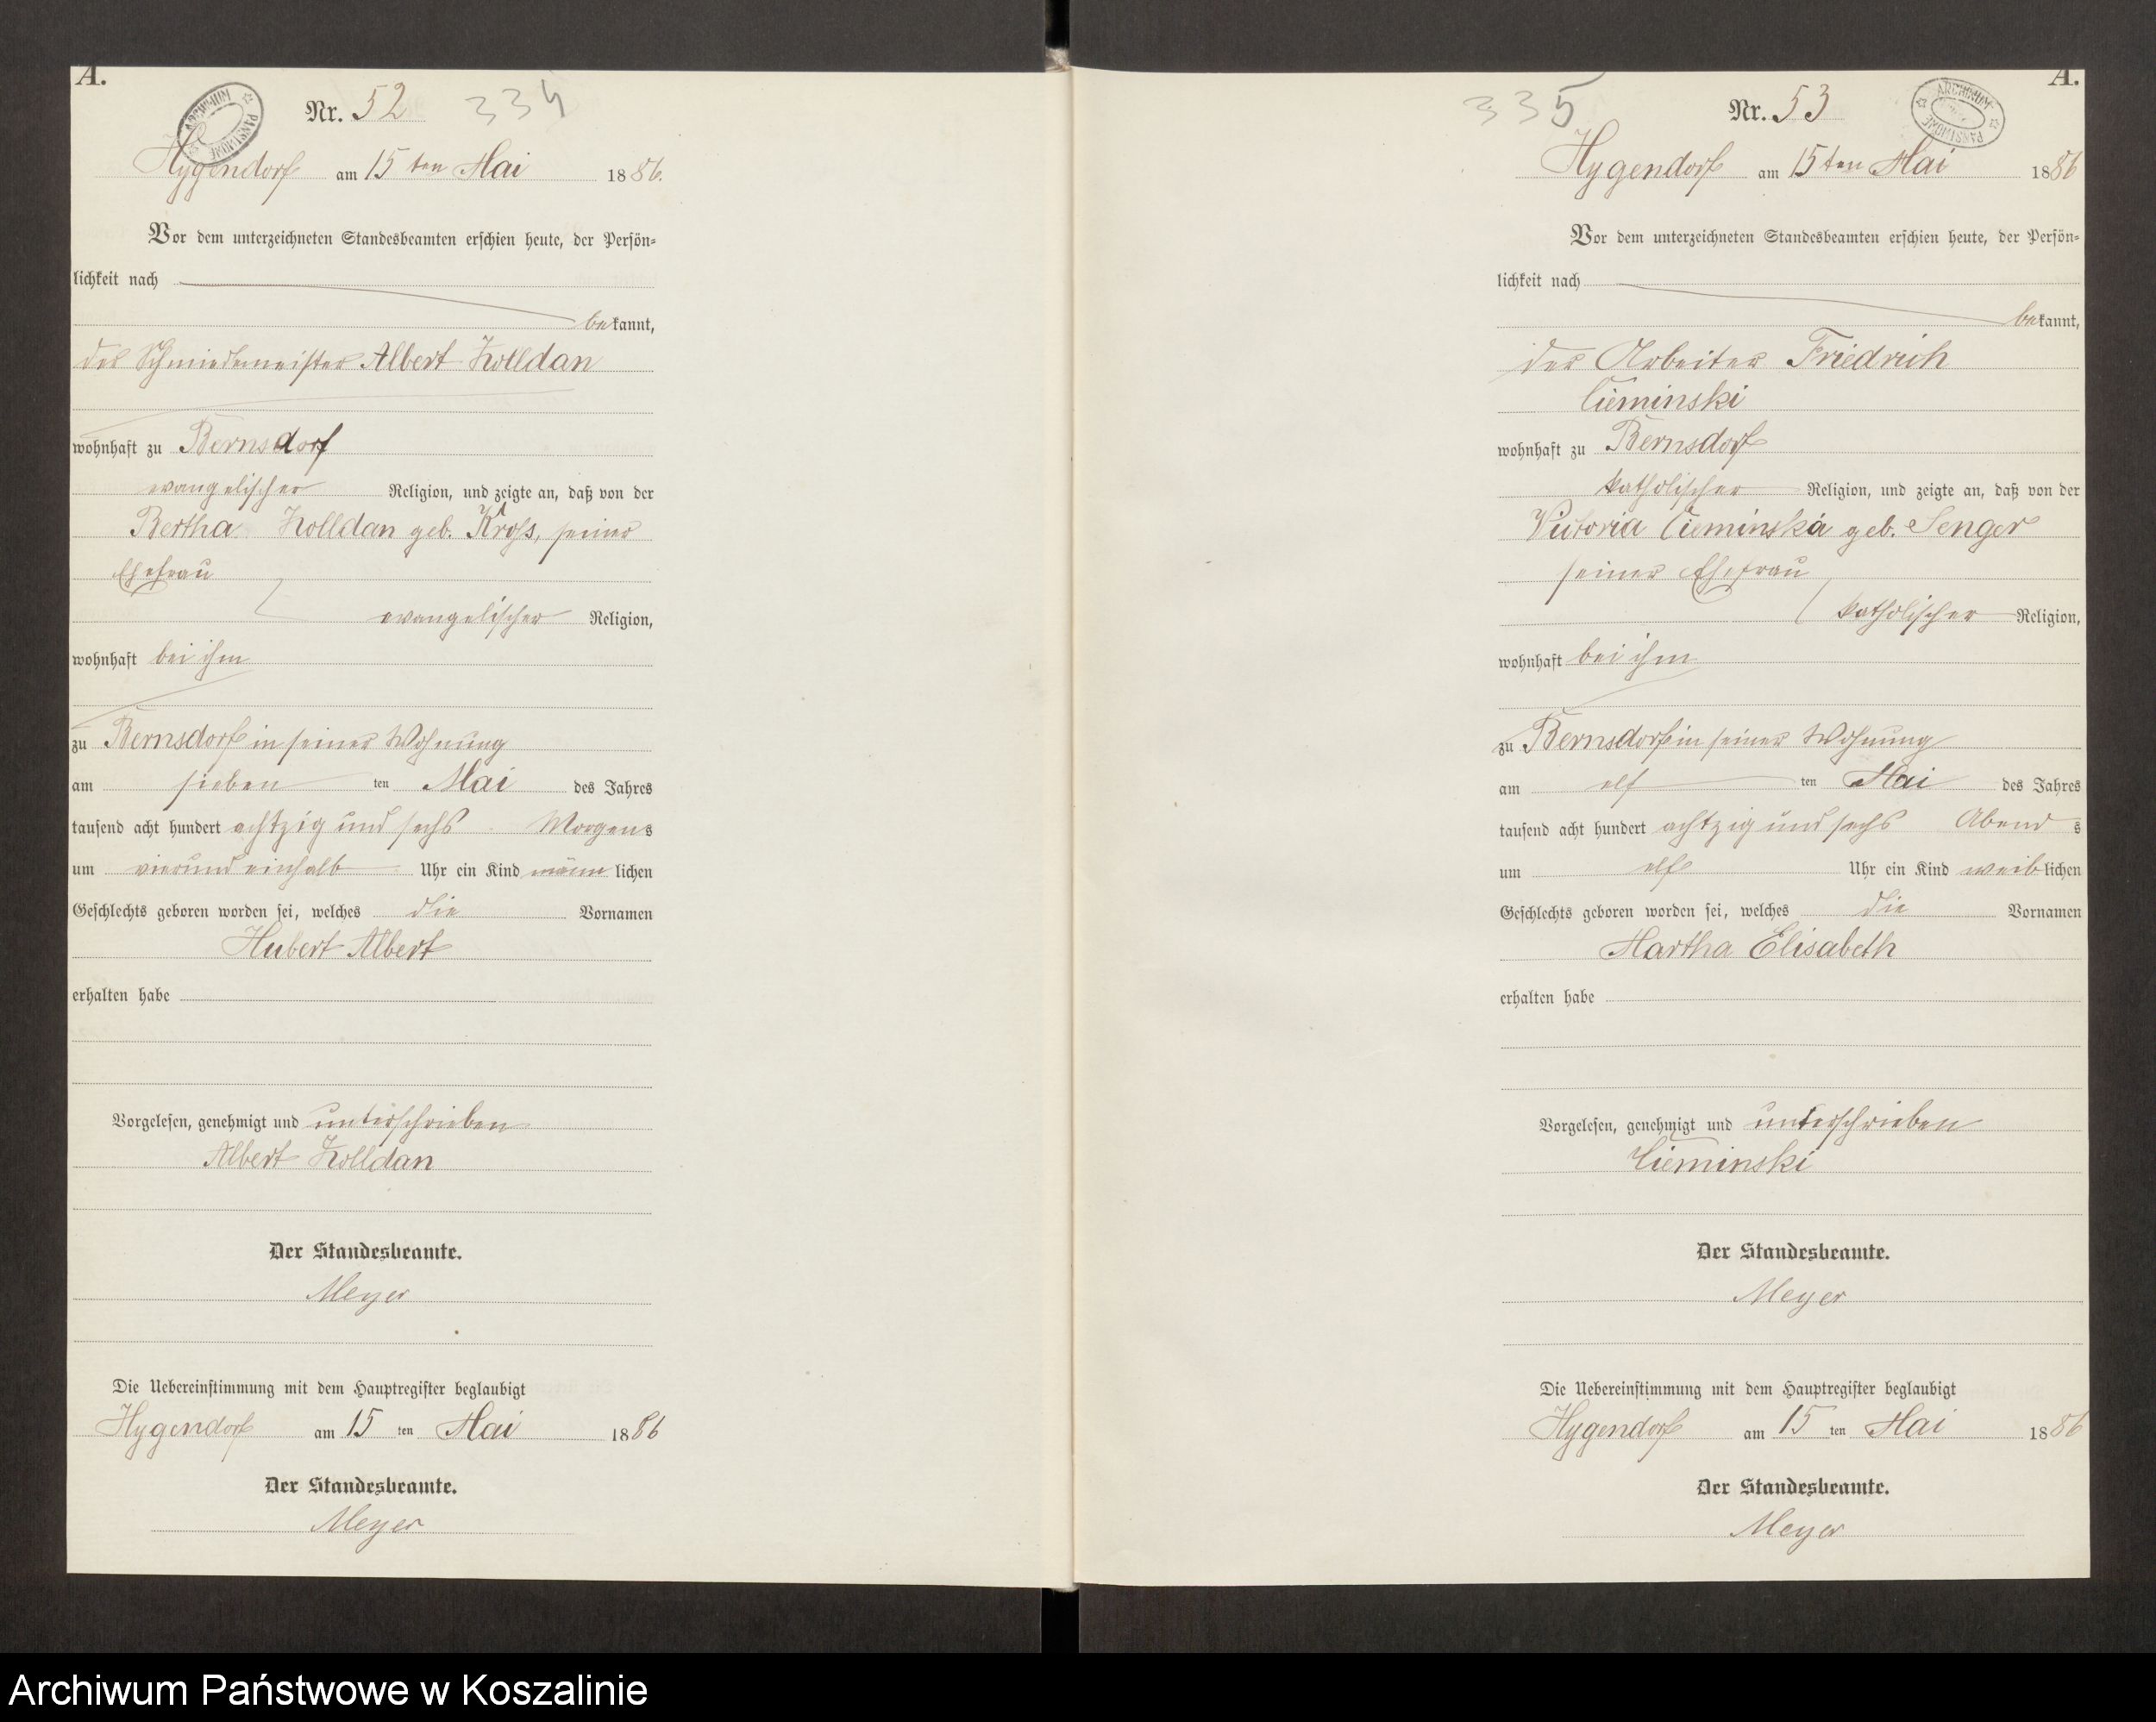 A.
Nr. 52 334
Hygendorf am 15 ten Mai 1886.
Vor dem unterzeichneten Standesbeamten erschien heute, der Persön-
lichkeit nach
bekannt,
der Schmiedemeister Albert Zolldan
wohnhaft zu Bernsdorf
evangelischer Religion, und zeigte an, daß von der
Bertha Zolldan geb. Kross, seiner
Ehefrau
evangelischer Religion,
wohnhaft bei ihm
zu Bernsdorf in seiner Wohnung
am sieben ten Mai des Jahres
tausend acht hundert achtzig und sechs Morgens
um vier und einhalb Uhr ein Kind männlichen
Geschlechts geboren worden sei, welches die Vornamen
Hubert Albert
erhalten habe
Vorgelesen, genehmigt und unterschrieben
Albert Zolldan
Der Standesbeamte.
Meyer
Die Uebereinstimmung mit dem Hauptregister beglaubigt
Hygendorf am 15 ten Mai 1886
Der Standesbeamte.
Meyer
A.
335 Nr. 53
ARCHIWUM PAŃSTWOWE
Hygendorf am 15 ten Mai 1886
Vor dem unterzeichneten Standesbeamten erschien heute, der Persön-
lichkeit nach
bekannt,
der Arbeiter Friedrich
Cieminski
wohnhaft zu Bernsdorf
katholischer Religion, und zeigte an, daß von der
Victoria Cieminska geb. Senger
seiner Ehefrau
katholischer Religion,
wohnhaft bei ihm
zu Bernsdorf in seiner Wohnung
am elf ten Mai des Jahres
tausend acht hundert achtzig und sechs Abends
um elf Uhr ein Kind weiblichen
Geschlechts geboren worden sei, welches die Vornamen
Martha Elisabeth
erhalten habe
Vorgelesen, genehmigt und unterschrieben
Cieminski
Der Standesbeamte.
Meyer
Die Uebereinstimmung mit dem Hauptregister beglaubigt
Hygendorf am 15 ten Mai 1886
Der Standesbeamte.
Meyer
Archiwum Państwowe w Koszalinie